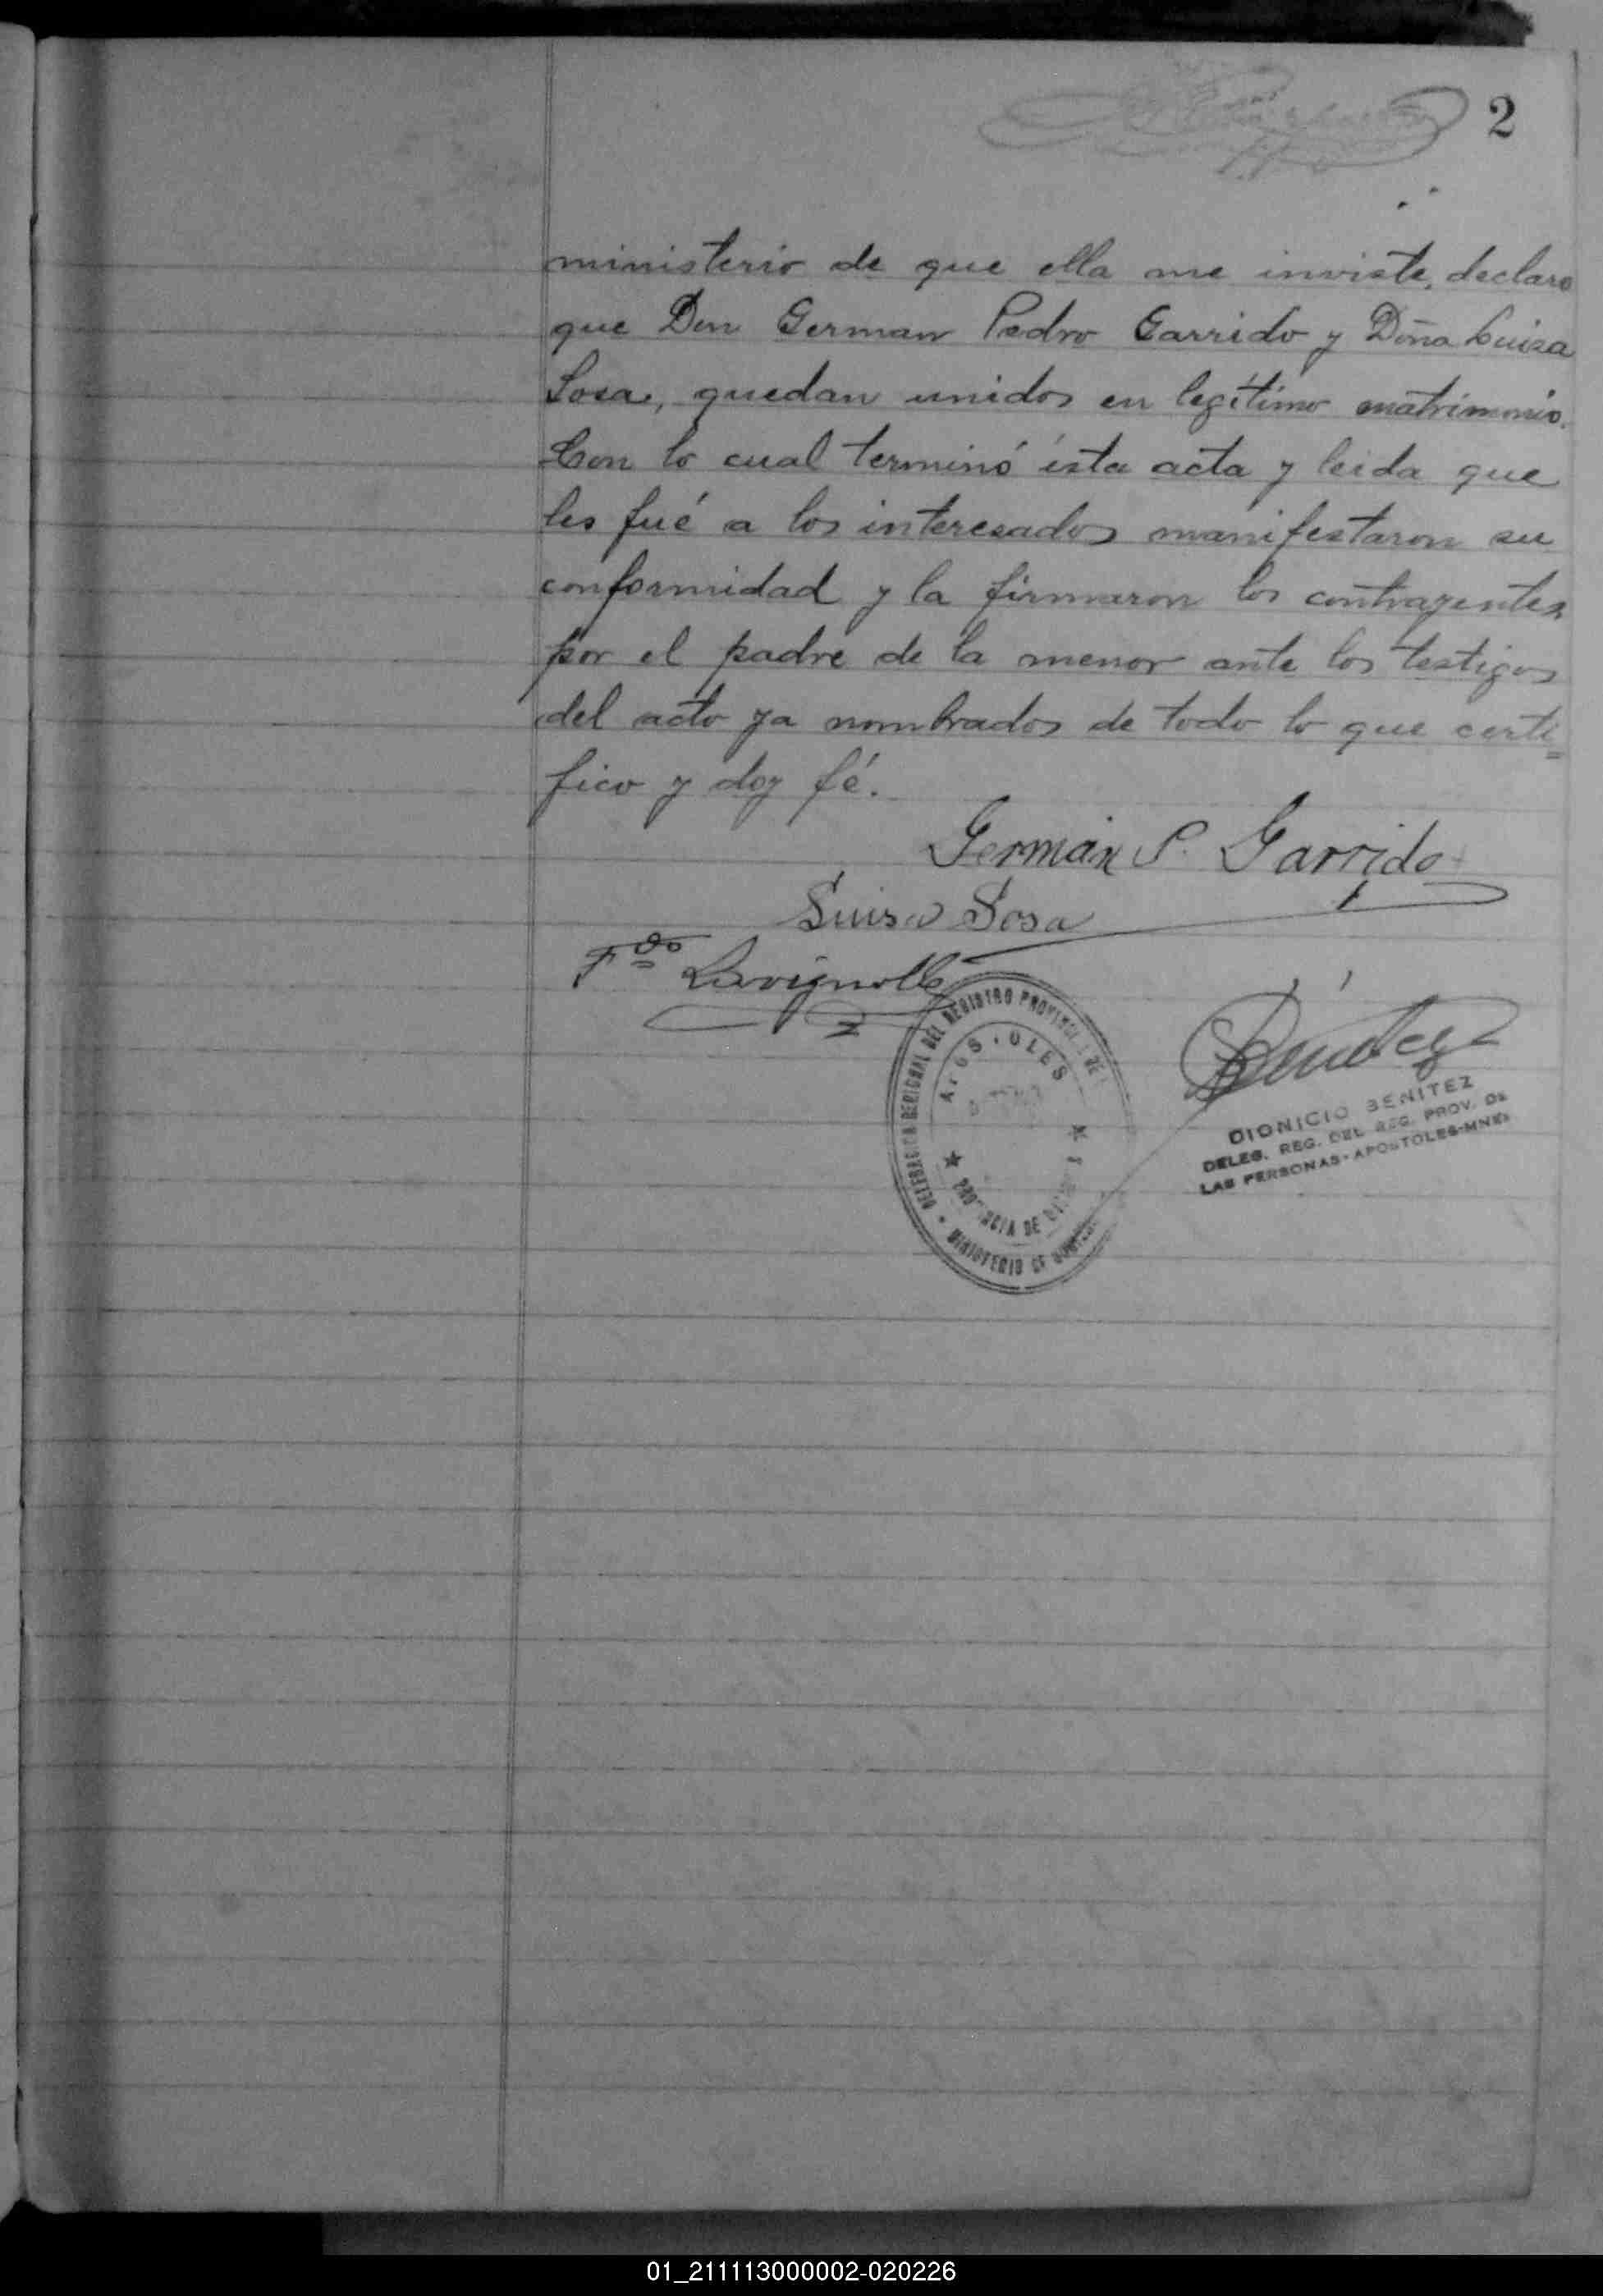 2
ministerio de que ella me inviste, declaro
que Don German Pedro Garrido y Doña Luisa
Sosa, quedan unidos en legítimo matrimonio.
Con lo cual terminó ésta acta y leida que
les fué a los interesados manifestaron su
conformidad y la firmaron los contrayentes,
por el padre de la menor ante los testigos
del acto ya nombrados de todo lo que certi=
fico y doy fé.
Germán P. Garrido
Luisa Sosa
Fdo Lavignolle
Benitez
DELEGACION REGIONAL DEL REGISTRO PROVINCIAL DE
APOSTOLES
PROVINCIA DE
MINISTERIO DE
DIONICIO BENITEZ
DELEG. REG. DEL REG. PROV. DE
LAS PERSONAS-APOSTOLES-MNES
01_211113000002-020226